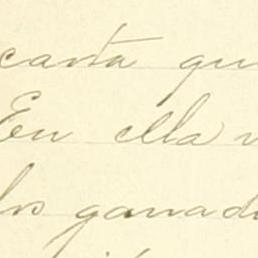 carta qu
En ella v
los ganad